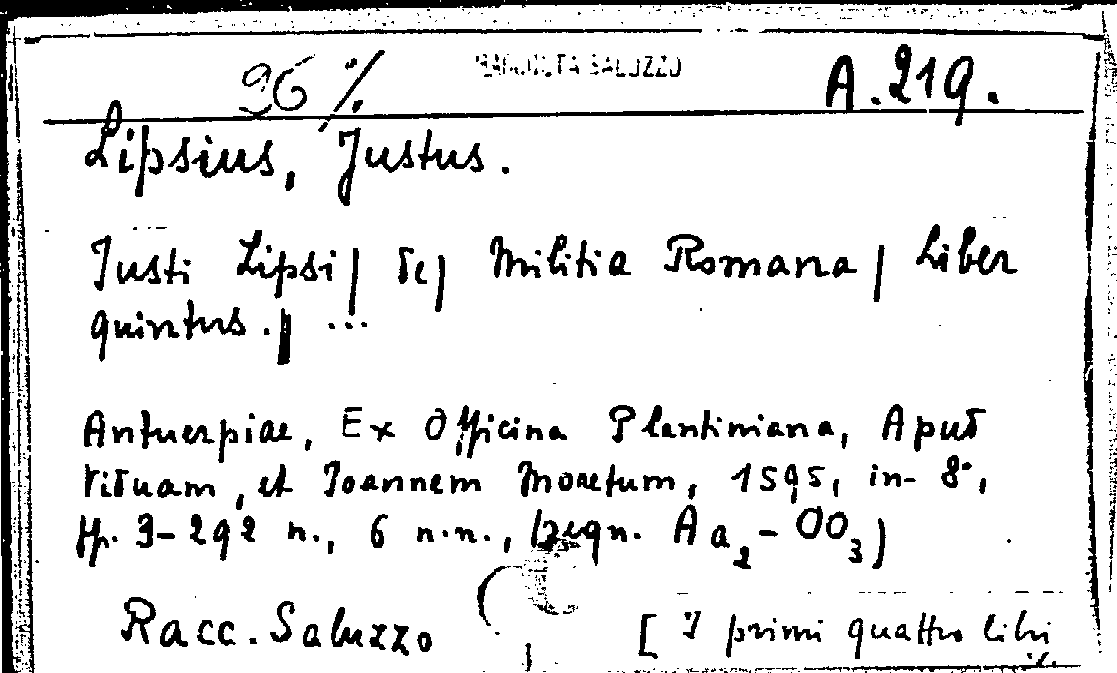 96 %
RACCOLTA SALUZZO
A.219.
Lipsius, Justus.
Justi Lipsi | de | Militia Romana | Liber
quintus. | ...
Antuerpiae, Ex Officina Plantiniana, Apud
Viduam, et Joannem Moretum, 1595, in-8°,
pp. 3-292 n., 6 n.n., (segn. Aa2 - OO3)
Racc. Saluzzo
[ I primi quattro libri
./.